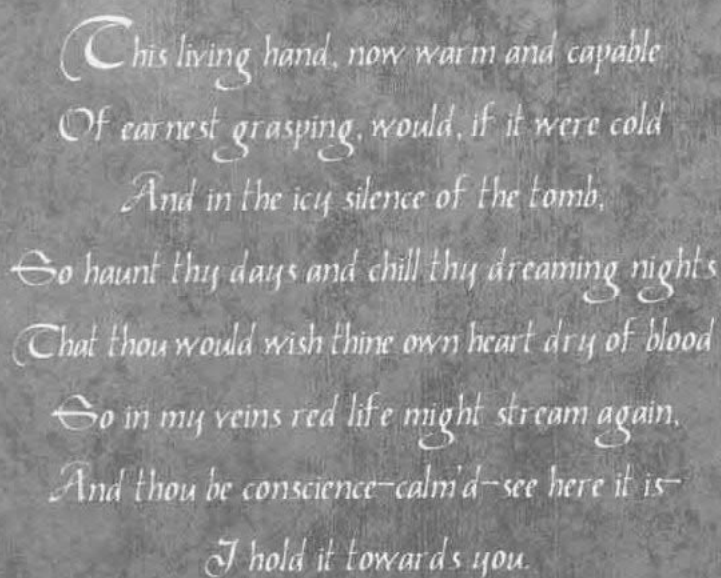 This living hand, now warm and capable
Of earnest grasping, would, if it were cold
And in the icy silence of the tomb,
So haunt thy days and chill thy dreaming nights
That thou would wish thine own heart dry of blood
So in my veins red life might stream again,
And thou be conscience-calm'd-see here it is-
I hold it towards you.